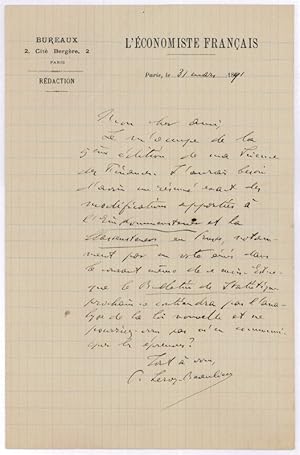 BUREAUX
2, Cité Bergère, 2
PARIS
RÉDACTION
L'ÉCONOMISTE FRANÇAIS
Paris, le 31 mars 1891
Mon cher ami,
Je m'occupe de la
5ème édition de ma Science
des Finances. J'aurais besoin
d'avoir un résumé exact des
modifications apportées à
l'Einkommensteuer et la
Classensteuer en Prusse notam-
ment par un vote émis dans
le courant même de ce mois. Est-ce
que le Bulletin de Statistique
prochain contiendra pas l'ana-
lyse de la loi nouvelle et ne
pourriez-vous pas m'en communi-
quer les épreuves?
Tout à vous,
P. Leroy-Beaulieu